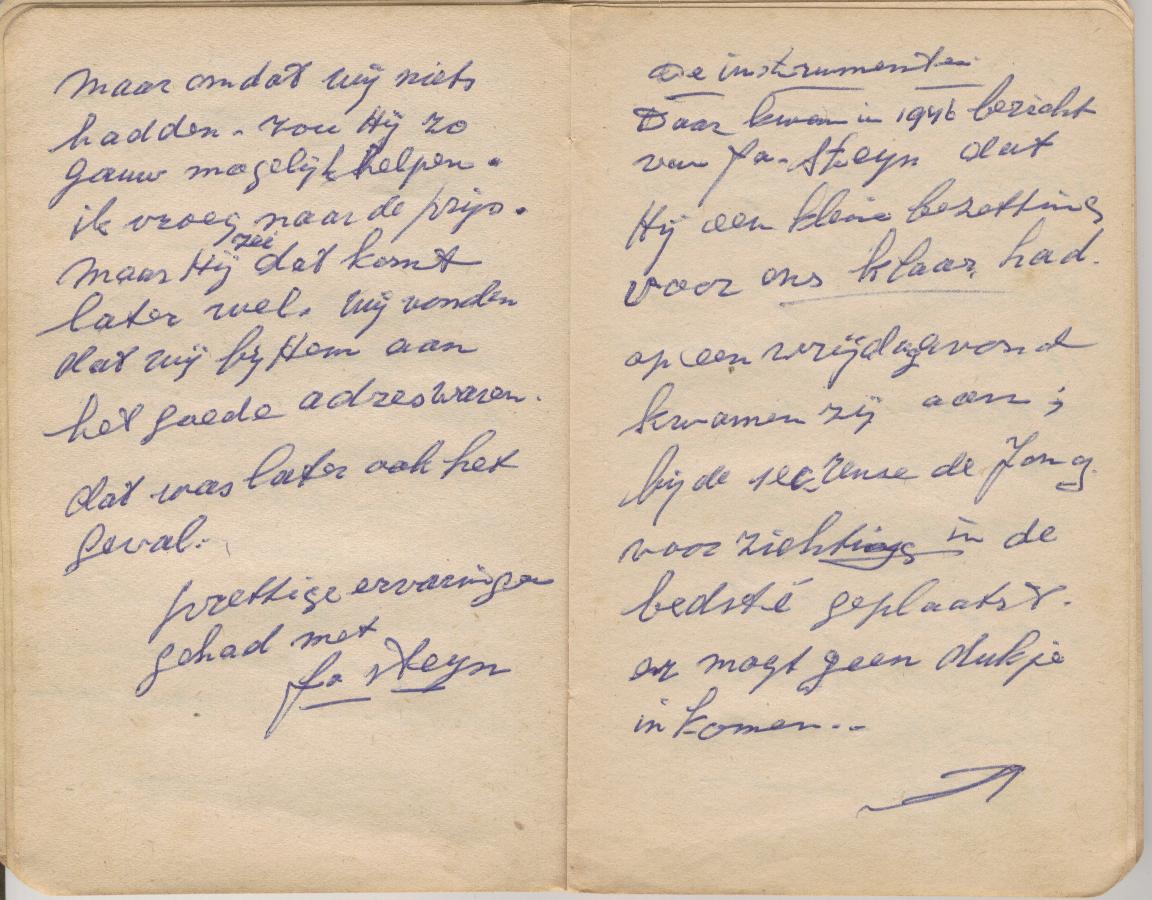 maar omdat wij niets
hadden - zou Hij zo
gauw mogelijk helpen.
ik vroeg naar de prijs.
maar Hij zei dat komt
later wel. wij vonden
dat wij bij Hem aan
het goede adres waren.
dat was later ook het
geval.
prettige ervaringen
gehad met
fa Steyn
De instrumenten
Daar kwam in 1946 bericht
van fa - Steyn dat
Hij een kleine bezetting
voor ons klaar had.
op een vrijdagavond
kwamen zij aan ;
bij de de Jong.
voorzichtig in de
bedsté geplaatst.
er mogt geen dukje
in komen..